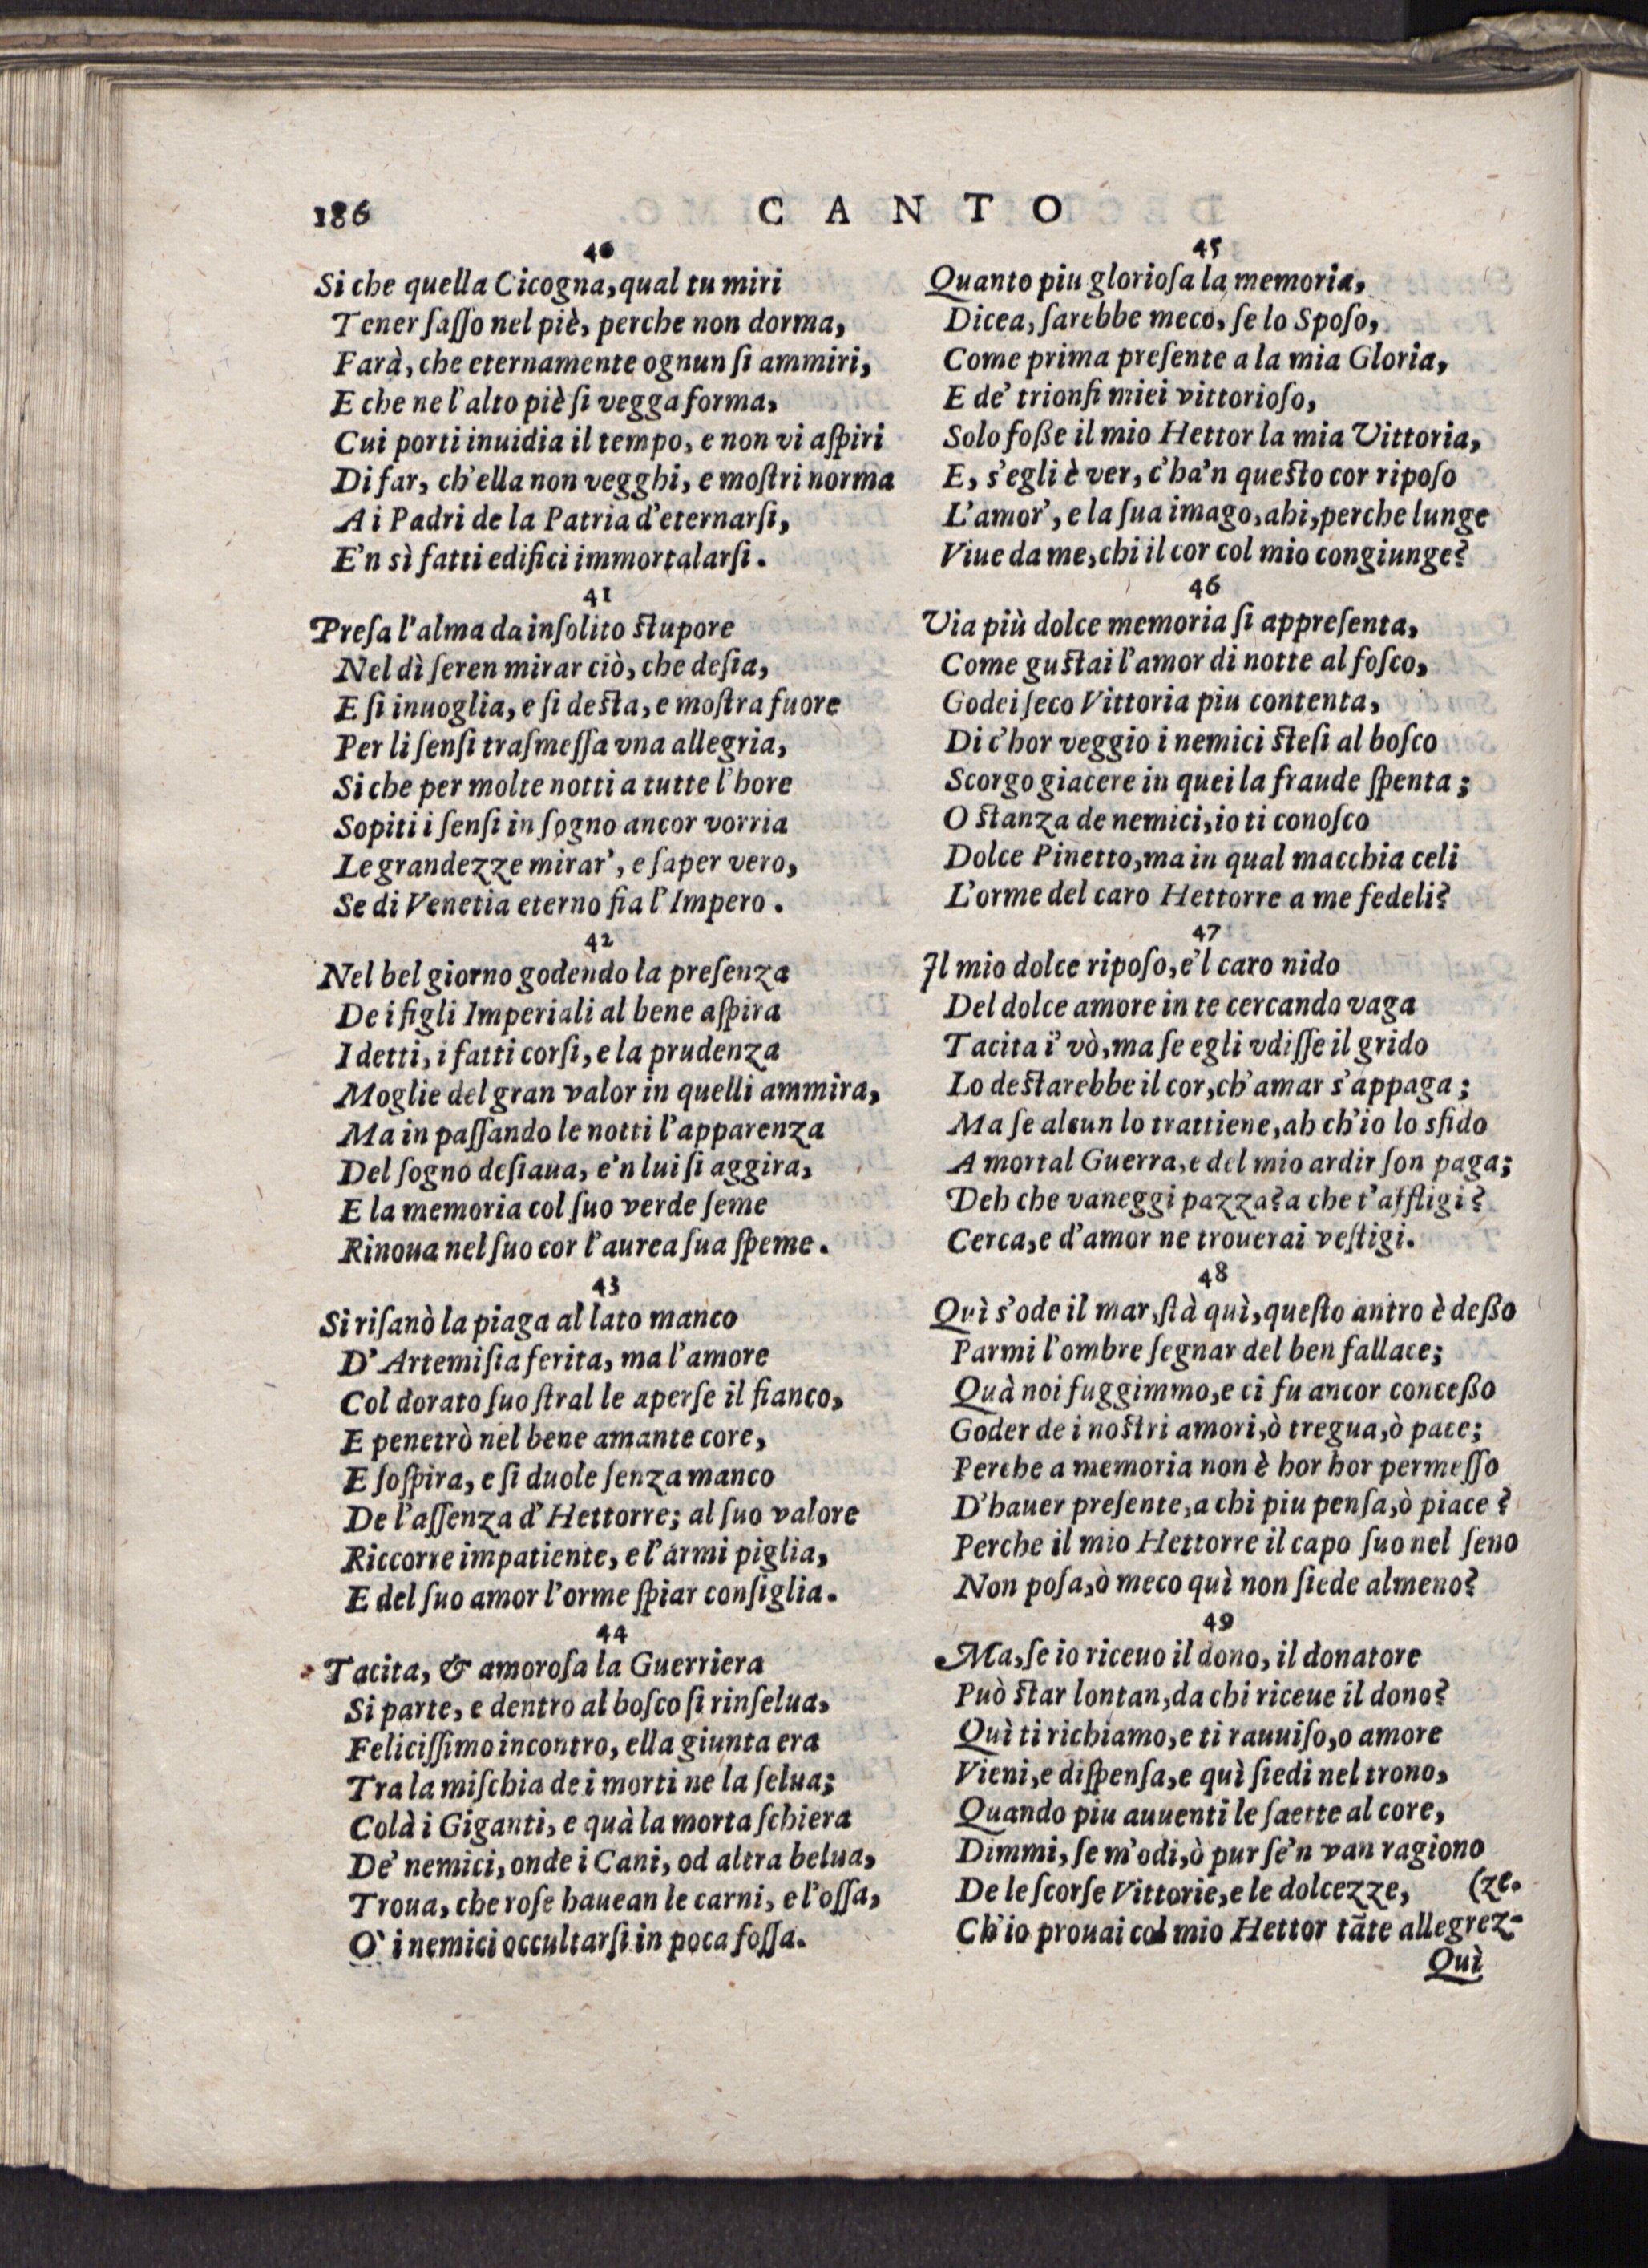 186 CANTO
40
Si che quella Cicogna, qual tu miri
Tener ſaſſo nel piè, perche non dorma,
Farà, che eternamente ognun ſi ammiri,
E che ne l'alto piè ſi vegga forma,
Cui porti inuidia il tempo, e non vi aſpiri
Di far, ch'ella non vegghi, e moſtri norma
A i Padri de la Patria d'eternarſi,
E'n sì fatti edifici immortalarſi.
41
Preſa l'alma da inſolito ſtupore
Nel dì ſeren mirar ciò, che deſia,
E ſi inuoglia, e ſi deſta, e moſtra fuore
Per li ſenſi traſmeſſa vna allegria,
Si che per molte notti a tutte l'hore
Sopiti i ſenſi in ſogno ancor vorria
Le grandezze mirar', e ſaper vero,
Se di Venetia eterno fia l'Impero.
42
Nel bel giorno godendo la preſenza
De i figli Imperiali al bene aſpira
I detti, i fatti corſi, e la prudenza
Moglie del gran valor in quelli ammira,
Ma in paſſando le notti l'apparenza
Del ſogno deſiaua, e'n lui ſi aggira,
E la memoria col ſuo verde ſeme
Rinoua nel ſuo cor l'aurea ſua ſpeme.
43
Si riſanò la piaga al lato manco
D'Artemiſia ferita, ma l'amore
Col dorato ſuo ſtral le aperſe il fianco,
E penetrò nel bene amante core,
E ſoſpira, e ſi duole ſenza manco
De l'aſſenza d'Hettorre; al ſuo valore
Riccorre impatiente, e l'armi piglia,
E del ſuo amor l'orme ſpiar conſiglia.
44
Tacita, & amoroſa la Guerriera
Si parte, e dentro al boſco ſi rinſelua,
Feliciſſimo incontro, ella giunta era
Tra la miſchia de i morti ne la ſelua;
Colà i Giganti, e quà la morta ſchiera
De' nemici, onde i Cani, od altra belua,
Troua, che roſe hauean le carni, e l'oſſa,
O' i nemici occultarſi in poca foſſa.
45
Quanto piu glorioſa la memoria,
Dicea, ſarebbe meco, ſe lo Spoſo,
Come prima preſente a la mia Gloria,
E de' trionfi miei vittorioſo,
Solo foße il mio Hettor la mia Vittoria,
E, s'egli è ver, c'ha'n queſto cor ripoſo
L'amor', e la ſua imago, ahi, perche lunge
Viue da me, chi il cor col mio congiunge?
46
Via più dolce memoria ſi appreſenta,
Come guſtai l'amor di notte al foſco,
Godei ſeco Vittoria piu contenta,
Di c'hor veggio i nemici ſteſi al boſco
Scorgo giacere in quei la fraude ſpenta;
O ſtanza de nemici, io ti conoſco
Dolce Pinetto, ma in qual macchia celi
L'orme del caro Hettorre a me fedeli?
47
Il mio dolce ripoſo, e'l caro nido
Del dolce amore in te cercando vaga
Tacita i' vò, ma ſe egli vdiſſe il grido
Lo deſtarebbe il cor, ch'amar s'appaga;
Ma ſe alcun lo trattiene, ah ch'io lo sfido
A mortal Guerra, e del mio ardir ſon paga;
Deh che vaneggi pazza? a che t'affligi?
Cerca, e d'amor ne trouerai veſtigi.
48
Quì s'ode il mar, ſtà quì, queſto antro è deßo
Parmi l'ombre ſegnar del ben fallace;
Quà noi fuggimmo, e ci fu ancor conceßo
Goder de i noſtri amori, ò tregua, ò pace;
Perche a memoria non è hor hor permeſſo
D'hauer preſente, a chi piu penſa, ò piace?
Perche il mio Hettorre il capo ſuo nel ſeno
Non poſa, ò meco quì non ſiede almeno?
49
Ma, ſe io riceuo il dono, il donatore
Può ſtar lontan, da chi riceue il dono?
Quì ti richiamo, e ti rauuiſo, o amore
Vieni, e diſpenſa, e quì ſiedi nel trono,
Quando piu auuenti le ſaette al core,
Dimmi, ſe m'odi, ò pur ſe'n van ragiono
De le ſcorſe Vittorie, e le dolcezze, (ze.
Ch'io prouai col mio Hettor tāte allegrez-
Quì